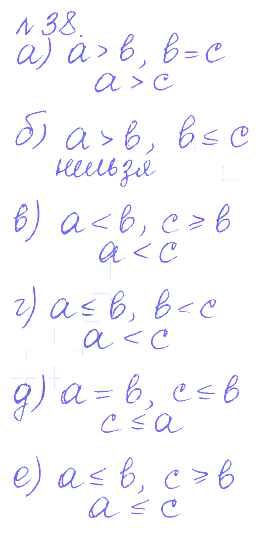 №38.
а) a > b, b = c
a > c
б) a > b, b ≤ c
нельзя
в) a < b, c ≥ b
a < c
г) a ≤ b, b < c
a < c
д) a = b, c ≤ b
c ≤ a
е) a ≤ b, c ≥ b
a ≤ c